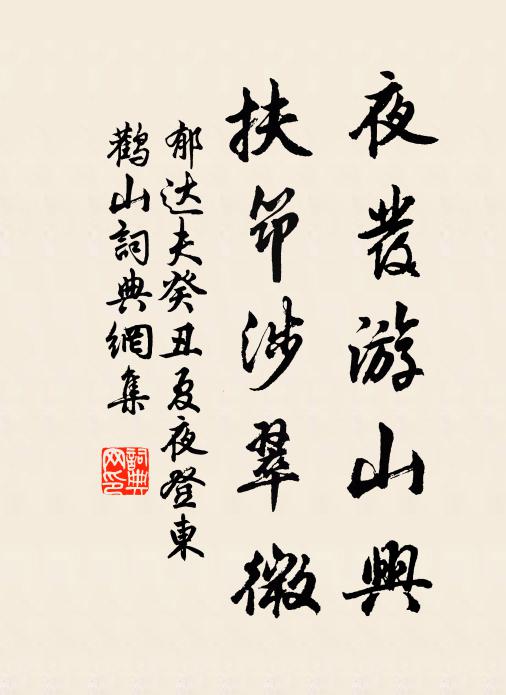 夜发游山興
扶筇涉翠微
郁达夫癸丑夏夜登東
鸛山詞典網集
詞典网印